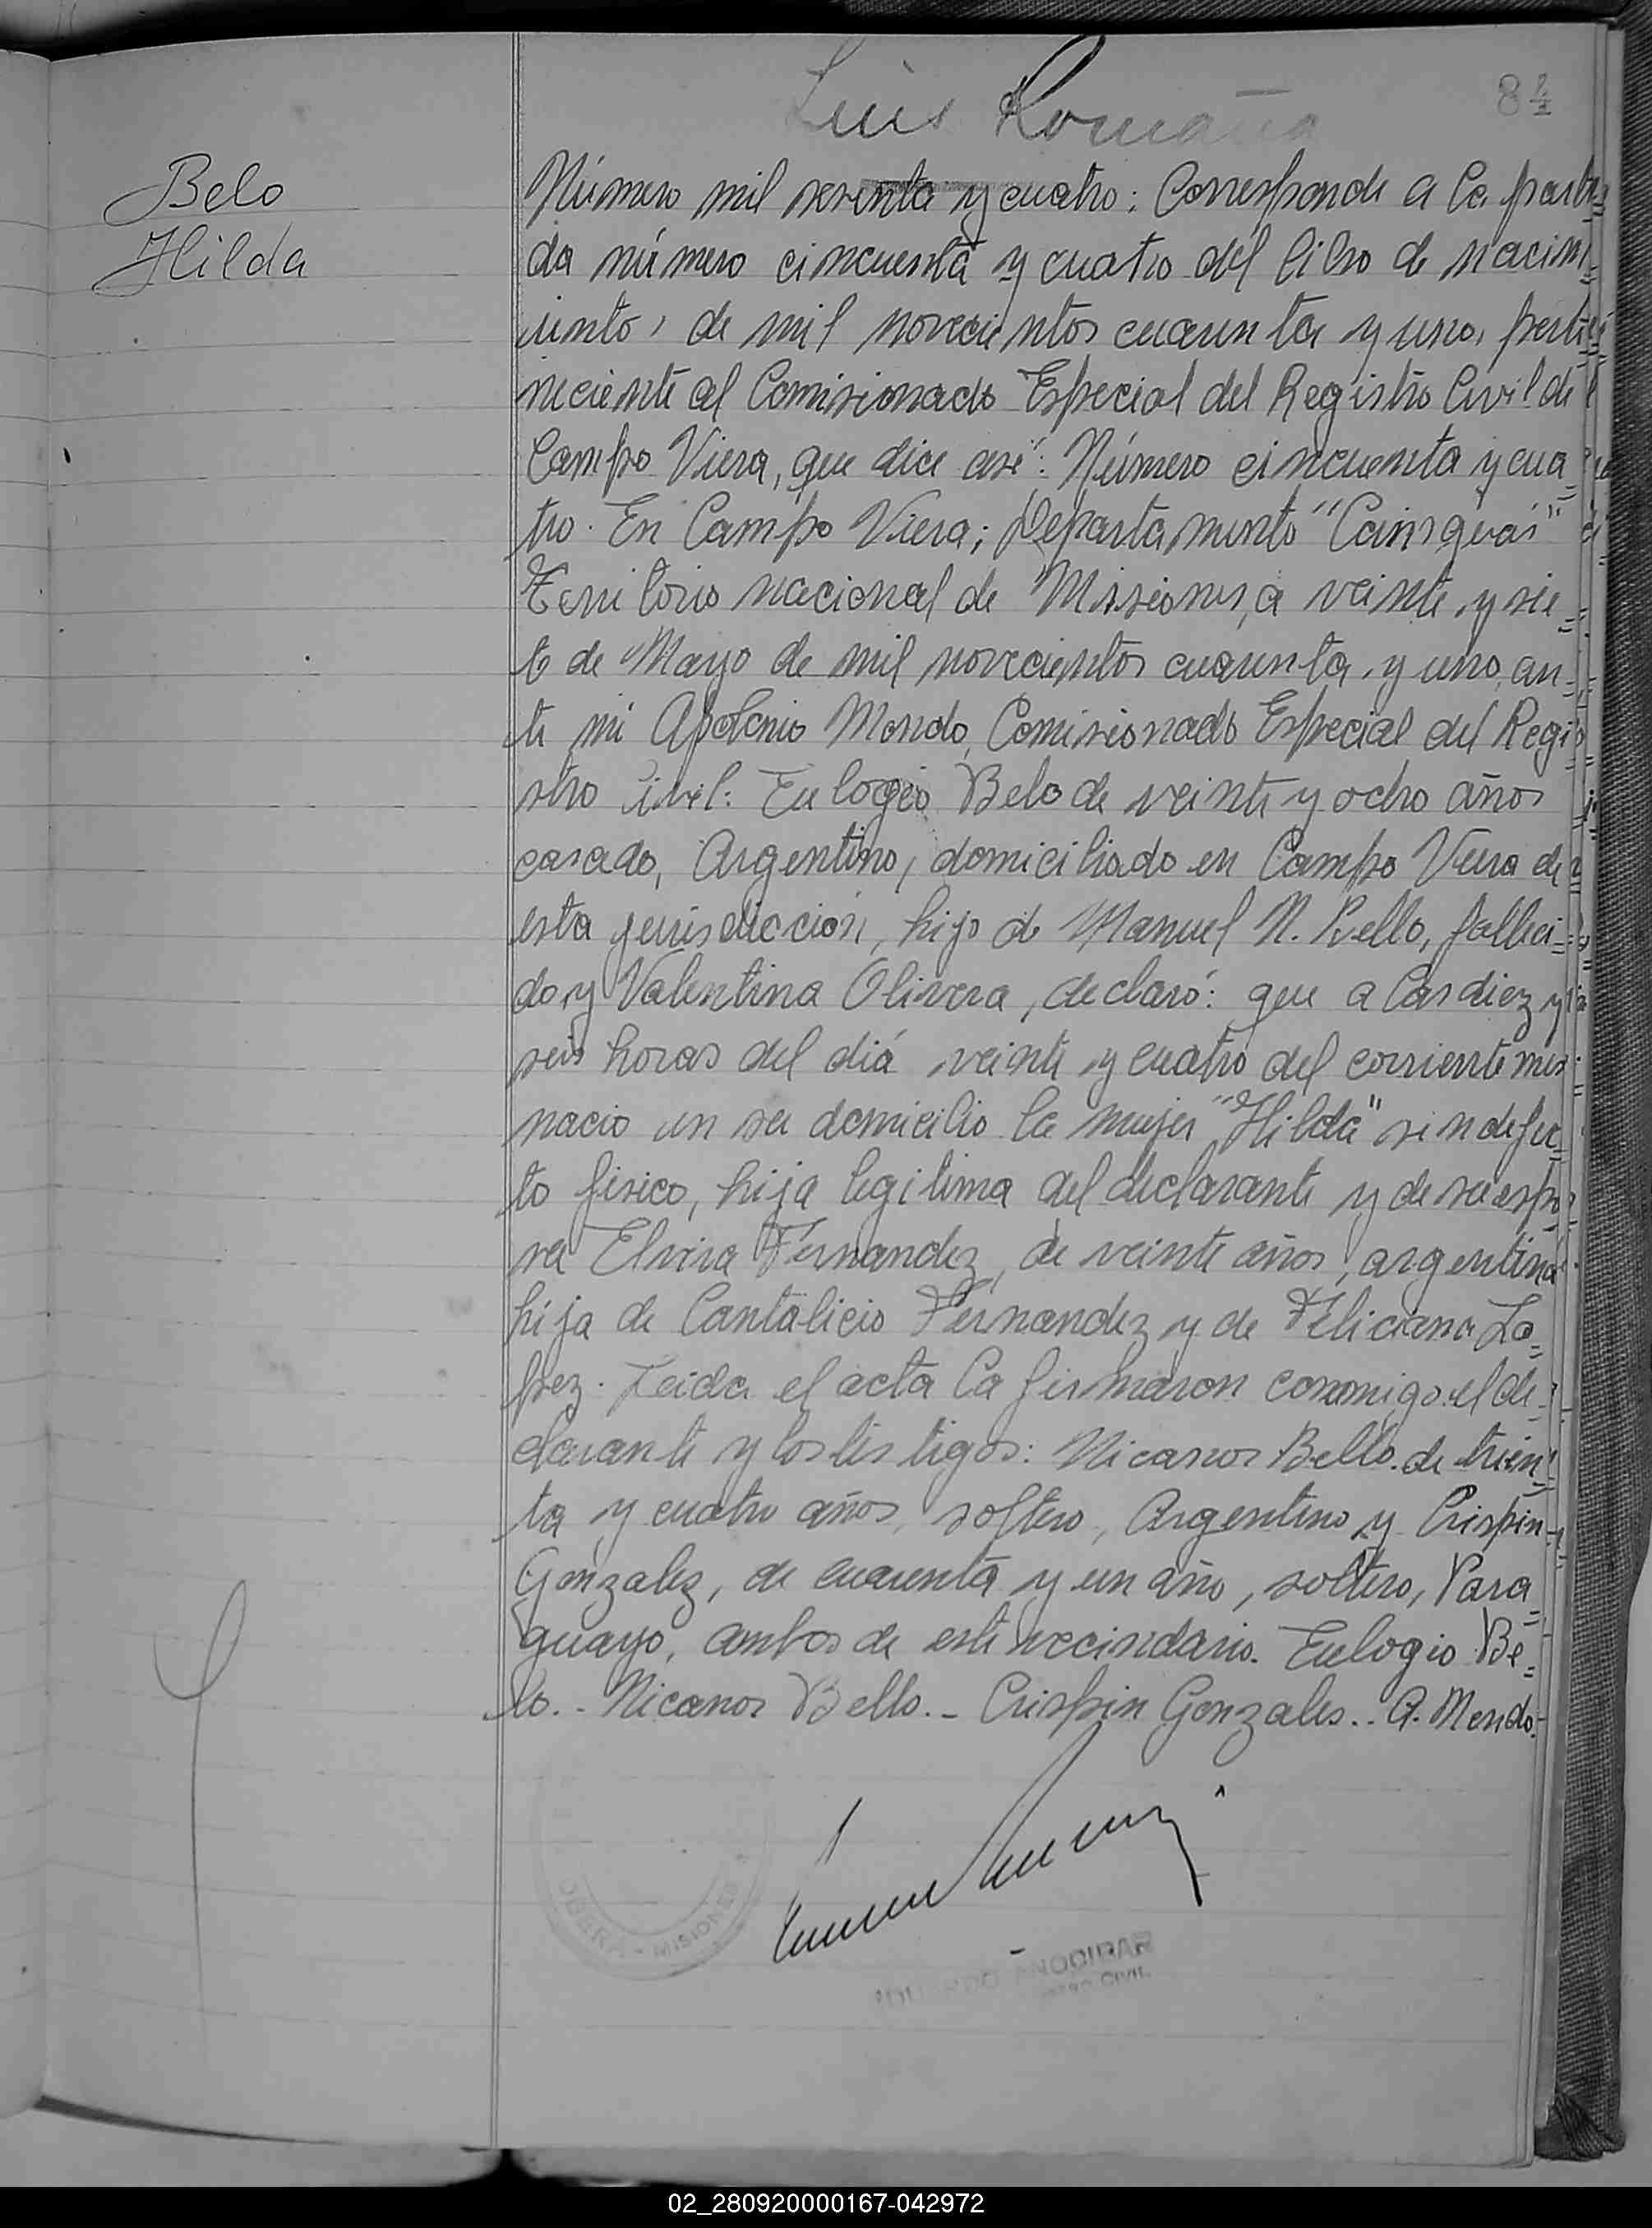 Luis Romaña
Belo
Hilda
Número mil sesenta y cuatro: Corresponde a la parti=
da número cincuenta y cuatro del libro de nacim=
iento, de mil novecientos cuarenta y uno, perte=
neciente al Comisionado Especial del Registro Civil de
Campo Viera, que dice asi: Número cincuenta y cua=
tro. En Campo Viera; Departamento "Cainguás"
Territorio nacional de Missiones, a veinte y sie=
te de Mayo de mil novecientos cuarenta y uno, an=
te mi Apolonio Mondo, Comisionado Especial del Regi
stro Civil: Eulogio Belo de veinte y ocho años
casado, Argentino, domiciliado en Campo Viera de
esta jurisdiccion, hijo de Manuel N. Bello, falleci=
do y Valentina Olivera, declaró: que a las diez y
seis horas del diá veinte y cuatro del corriente mes
nacio en su domicilio la mujer "Hilda" sin defec=
to fisico, hija legitima del declarante y de su espo=
sa Elvira Fernandez, de veinte años, argentina
hija de Cantalicio Fernandez y de Feliciana Lo=
pez. Leida el acta la firmaron conmigo el de=
clarante y los testigos: Nicanor Bello de trein=
ta y cuatro años, soltero, Argentino y Crispin
Gonzalez, de cuarenta y un año, soltero, Para=
guayo, ambos de este vecindario. Eulogio Be=
lo.- Nicanor Bello.- Crispin Gonzales.- A. Mendo.
OBERA - MISIONES
CIVIL
02_280920000167-042972